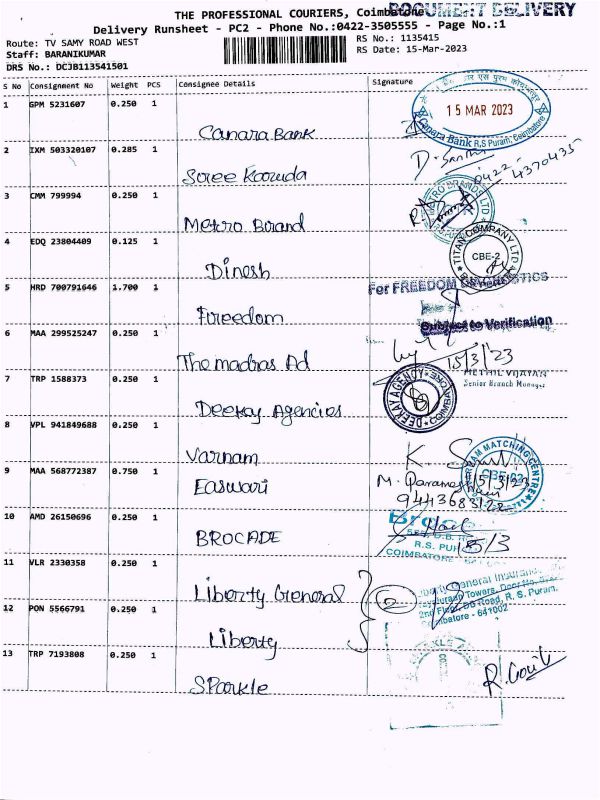 THE PROFESSIONAL COURIERS, Coimbatore
DOCUMENT DELIVERY
Delivery Runsheet - PC2 - Phone No.:0422-3505555 - Page No.:1
Route: TV SAMY ROAD WEST
Staff: BARANIKUMAR
DRS No.: DCJB113541501
RS No.: 1135415
RS Date: 15-Mar-2023
S No Consignment No Weight PCS Consignee Details Signature
1 GPM 5231607 0.250 1
Canara Bank
15 MAR 2023
Canara Bank R.S Puram, Coimbatore
2 IXM 503320107 0.285 1
Sree Karuda
0422-4370435
3 CMM 799994 0.250 1
Metro Brand
METRO BRANDS LTD
4 EDQ 23804409 0.125 1
Dinesh
TITAN COMPANY LTD
CBE-2
5 HRD 700791646 1.700 1
Freedom
For FREEDOM
Subject to Verification
6 MAA 299525247 0.250 1
The madras Ad
15/3/23
Senior Branch Manager
7 TRP 1588373 0.250 1
Deekay Agencies
DEEKAY AGENCY
8 VPL 941849688 0.250 1
Varnam
MATCHING CENTRE
9 MAA 568772387 0.750 1
Easwari
15/3/23
9443683122
10 AMD 26150696 0.250 1
BROCADE
R.S. PUR
COIMBATORE
15/3
11 VLR 2330358 0.250 1
Liberty General
2
Liberty General Insurance
2nd Floor, DB Road, R.S. Puram,
Coimbatore - 641002
12 PON 5566791 0.250 1
Liberty
13 TRP 7193808 0.250 1
Sparkle